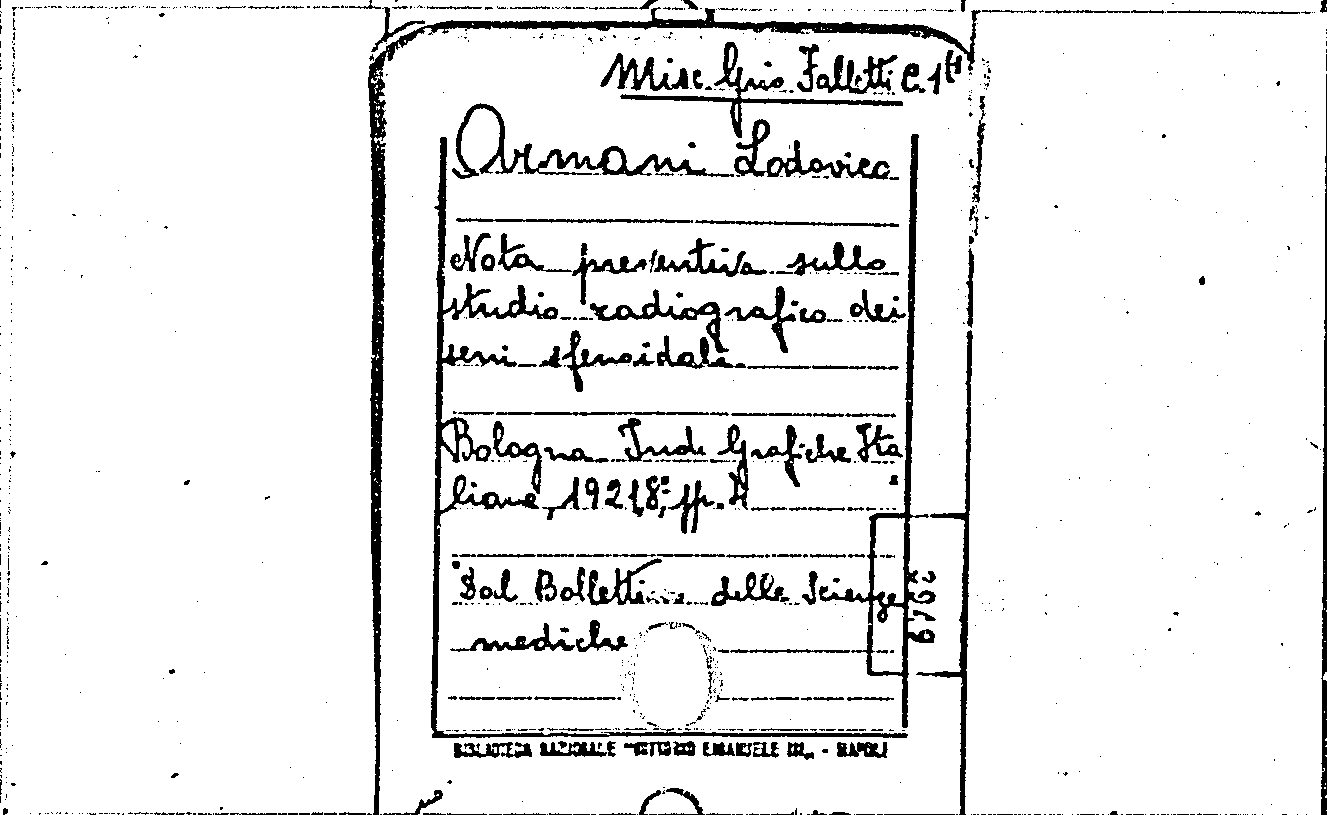 Misc Grio Falletti C. 1(1
Armani Lodovico
Nota preventiva sullo
studio radiografico dei
seni sfenoidali.
Bologna Ind. Grafiche Ita
liane, 1921, 8°, pp. 4
"Dal Bollettino delle Scienze
mediche
BIBLIOTECA NAZIONALE "VITTORIO EMANUELE III„ - NAPOLI